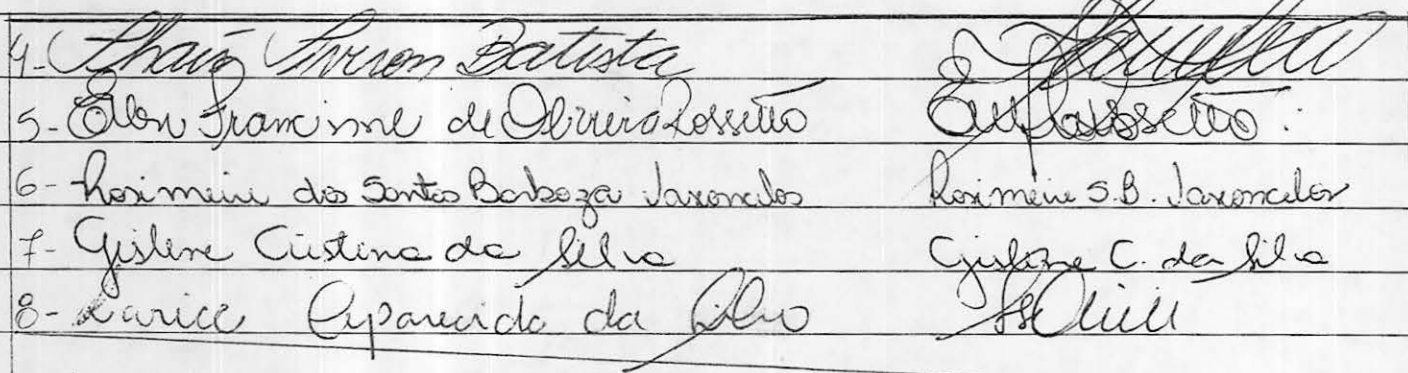 4- Thaís Batista
5- Ellen Francinne de Oliveira Rossetto
6- Rosimeire dos Santos Barboza Vasconcelos Rosimeire S.B. Vasconcelos
7- Gislene Cristina da Silva Gislene C. da Silva
8- Larice Aparecida da Silva